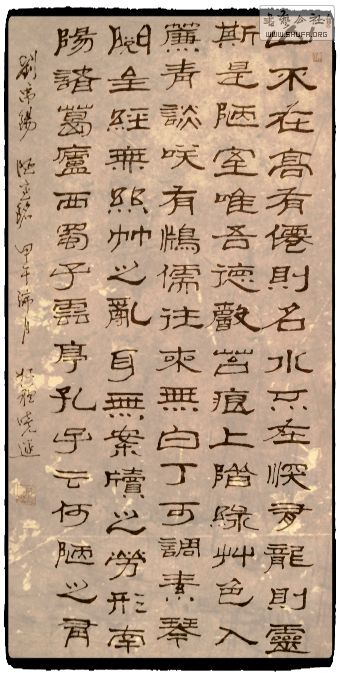 山不在高有僊則名水不在深有龍則靈
斯是陋室唯吾德馨苔痕上階綠艸色入
簾青談咲有鴻儒往來無白丁可調素琴
閱金經無絲竹之亂耳無案牘之勞形南
陽諸葛廬西蜀子雲亭孔子云何陋之有
劉禹錫 陋室銘 甲午 月
WWW.SHUFA.ORG